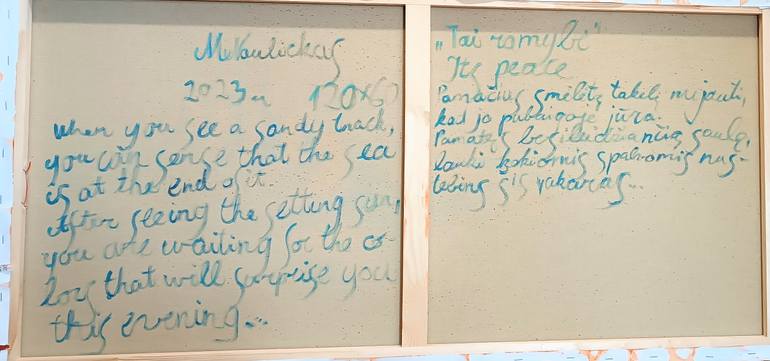 M. Kaulickas
2023m 120x60
when you see a sandy track,
you can sense that the sea
is at the end of it.
After seeing the setting sun,
you are waiting for the co-
lors that will surprise you
this evening...
„Tai ramybė"
Its peace
Pamačius smėlėtą takelį nujauti,
kad jo pabaigoje jūra.
Pamatęs besileidžiančią saulę,
lauki kokiomis spalvomis nus-
tebins šis vakaras...